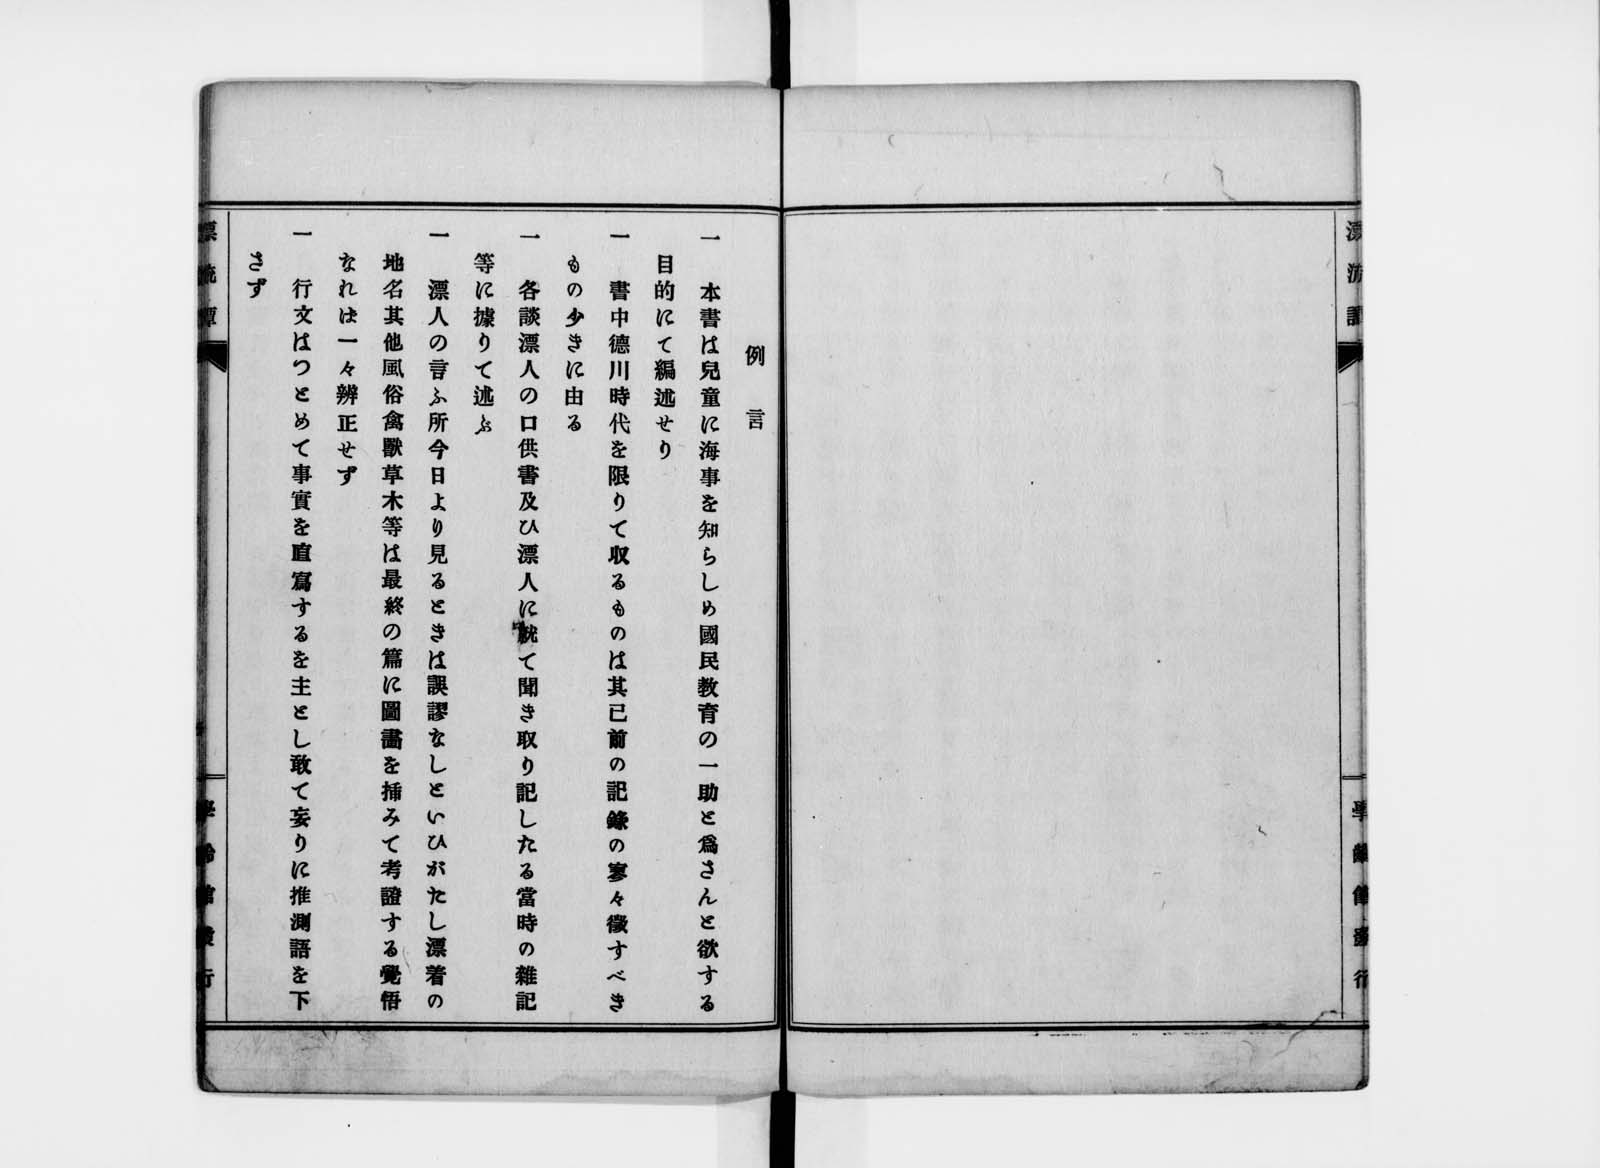 例言
一　本書は兒童に海事を知らしめ國民教育の一助と爲さんと欲する
目的にて編述せり
一　書中德川時代を限りて収るものは其已前の記錄の寥々徵すべき
もの少きに由る
一　各談漂人の口供書及ひ漂人に就て聞き取り記したる當時の雜記
等に據りて述ぶ
一　漂人の言ふ所今日より見るときは誤謬なしといひがたし漂着の
地名其他風俗禽獸草木等は最終の篇に圖畵を揷みて考證する覺悟
なれは一々辨正せず
一　行文はつとめて事實を直寫するを主とし敢て妄りに推測語を下
さず